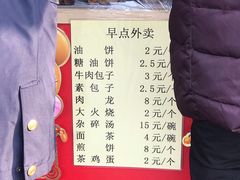 早点外卖
油饼 2元/个
糖油饼 2.5元/个
牛肉包子 3元/个
素包子 2.5元/个
肉龙 8元/个
大火烧 2元/个
杂碎汤 15元/碗
面茶 4元/碗
煎饼 8元/个
茶鸡蛋 2元/个